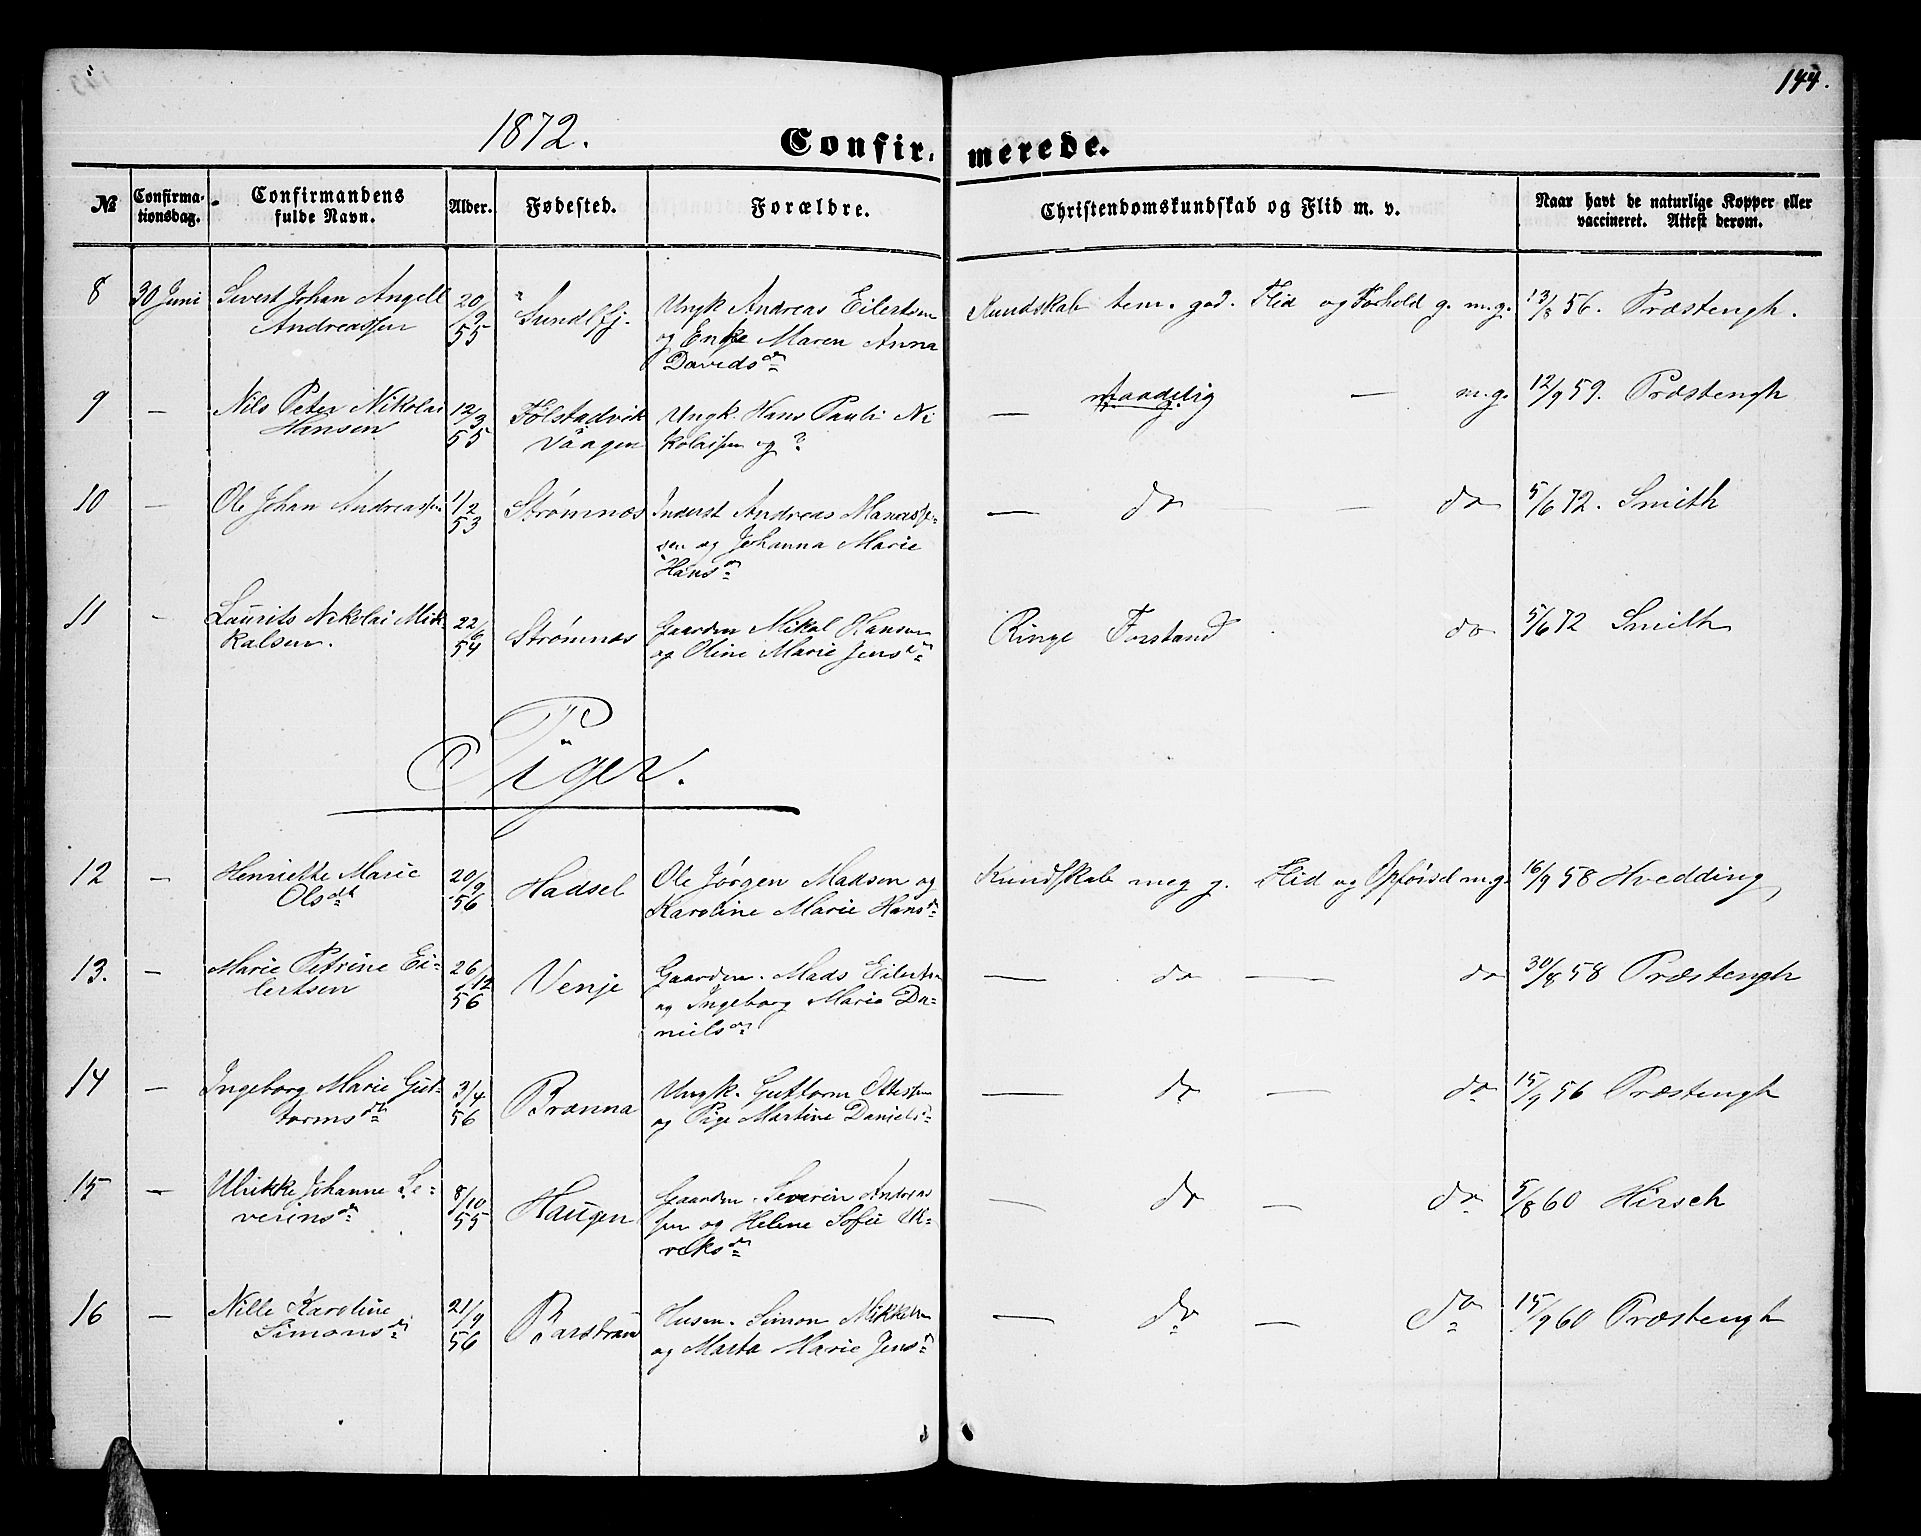 144.
1872.
Confirmerede.
№ Confirmationsdag. Confirmandens fulde Navn. Alder. Fødested. Forældre. Christendomskundskab og Flid m. v. Naar havt de naturlige Kopper eller vaccineret. Attest derom.
8 30 Juni Sivert Johan Angell 20/9 Sundlfj. Ungk Andreas Eilertsen Kundskab tem. god. Flid og Forhold g. m.g. 13/8 56. Præstengh.
Andreassen 55 og Enke Maren Anna
Davidsdr
9 — Nils Peter Nikolai 12/3 Følstadvik Ungk. Hans Pauli Ni — maadelig — m.g. 12/9 59. Præstengh
Hansen 55 Vaagen kolaisen og ?
10 — Ole Johan Andreassen 1/2 Strømnæs Inderst Andreas Manasse- — do — — do 5/6 72. Smith
53 sen og Johanna Marie
Hansdr
11 — Laurits Nikolai Mik- 22/6 Strømnæs Gaardm Mikal Hansen Ringe Forstand do 5/6 72 Smith
kalsen. 54 og Oline Marie Jensdr
Piger.
12 — Henriette Marie 20/9 Hadsel Ole Jørgen Madsen og Kundskab meg g. Flid og Opførsel m.g. 16/9 58 Hvedding
Olsdtr 56 Karoline Marie Hansdr
13. — Marie Petrine Ei- 26/12 Venje Gaardm. Mads Eilertsen — do — do 30/8 58 Præstengh
lertsen 56 og Ingeborg Marie Da-
nielsdr
14 — Ingeborg Marie Gut- 3/4 Brænna Ungk. Guttorm Ottessen — do — do 15/9 56 Præstengh
tormsdtr 56 og Pige Martine Danielsdr
15 — Ulrikke Johanne Se- 8/10 Haugen Gaardm. Severin Andreas — do — do 5/8 60 Hirsch
verinsdr 55 sen og Helene Sofie
reksdr
16 — Nille Karoline 21/9 Husm. Simon Mikkelsen — do — do 15/9 60 Præstengh
Simonsdr 56 og Marta Marie Jensdr